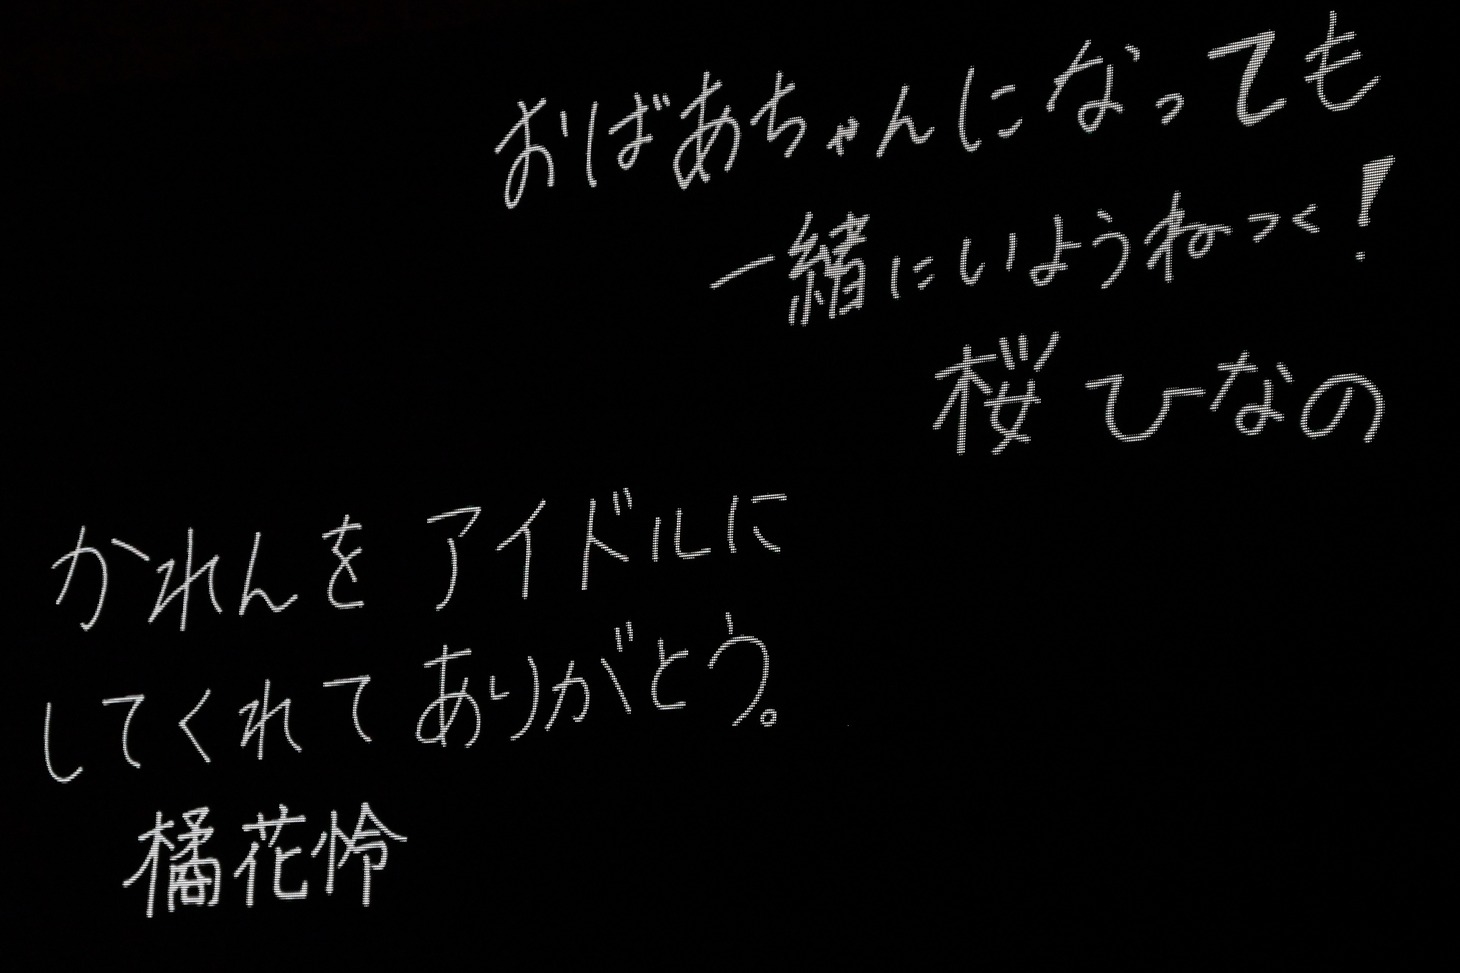 おばあちゃんになっても
一緒にいようねっ!
桜ひなの
かれんをアイドルに
してくれてありがとう。
橘花怜